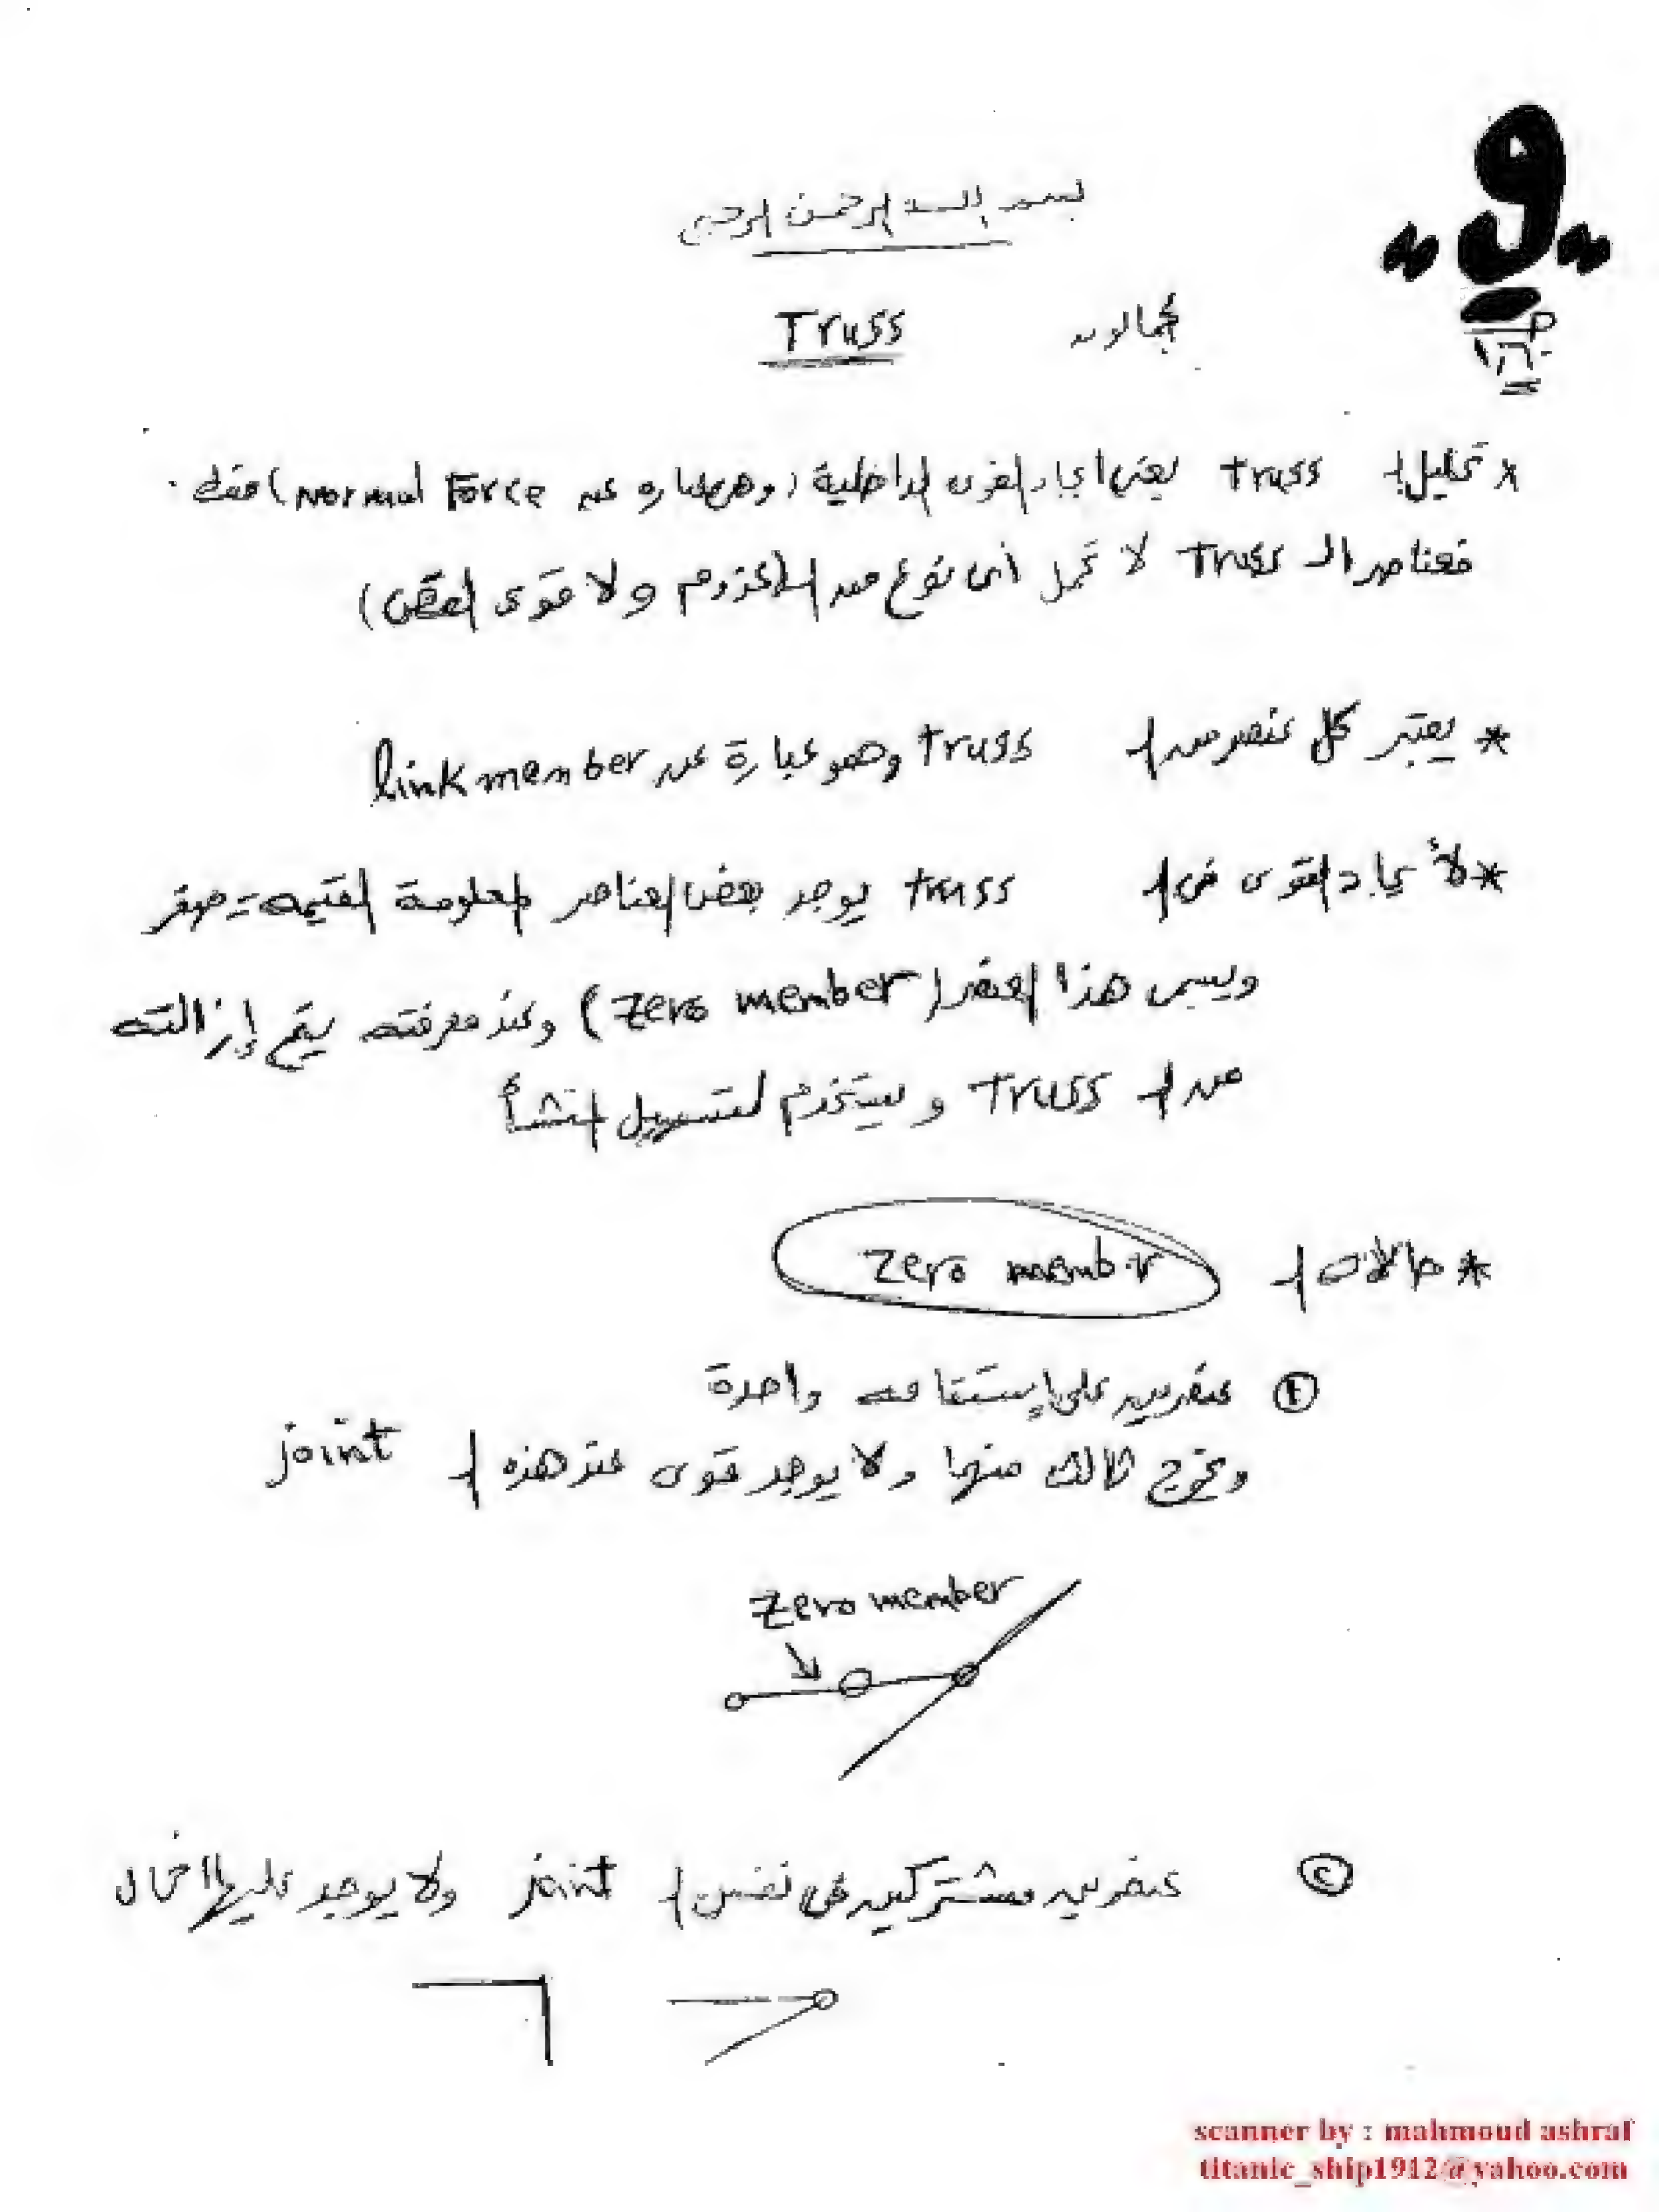 بسم الله الرحمن الرحيم
Truss جمالون
* تحليل ال truss يعنى ايجاد القوى الداخلية (وهى عباره عن Normal Force) فقط.
فعناصر الـ Truss لا تحمل أى نوع من العزوم ولا قوى القص)
* يعتبر كل عنصر من ال truss وهو عبارة عن link member
* لأيجاد القوى فى ال truss يوجد بعض العناصر معلومة القيمه = صفر
ويسمى هذا العنصر (zero member) وعند معرفته يتم إزالته
من ال Truss ويستخدم لتسهيل المنشأ
* حالات ال zero member
① عنصرين على إستقامه واحدة
ويخرج ثالث منها ولا يوجد قوى عند هذه ال joint
zero member
② عنصرين مشتركين فى نفس ال joint ولا يوجد عليها احمال
scanner by : mahmoud ashraf
titanic_ship1912@yahoo.com